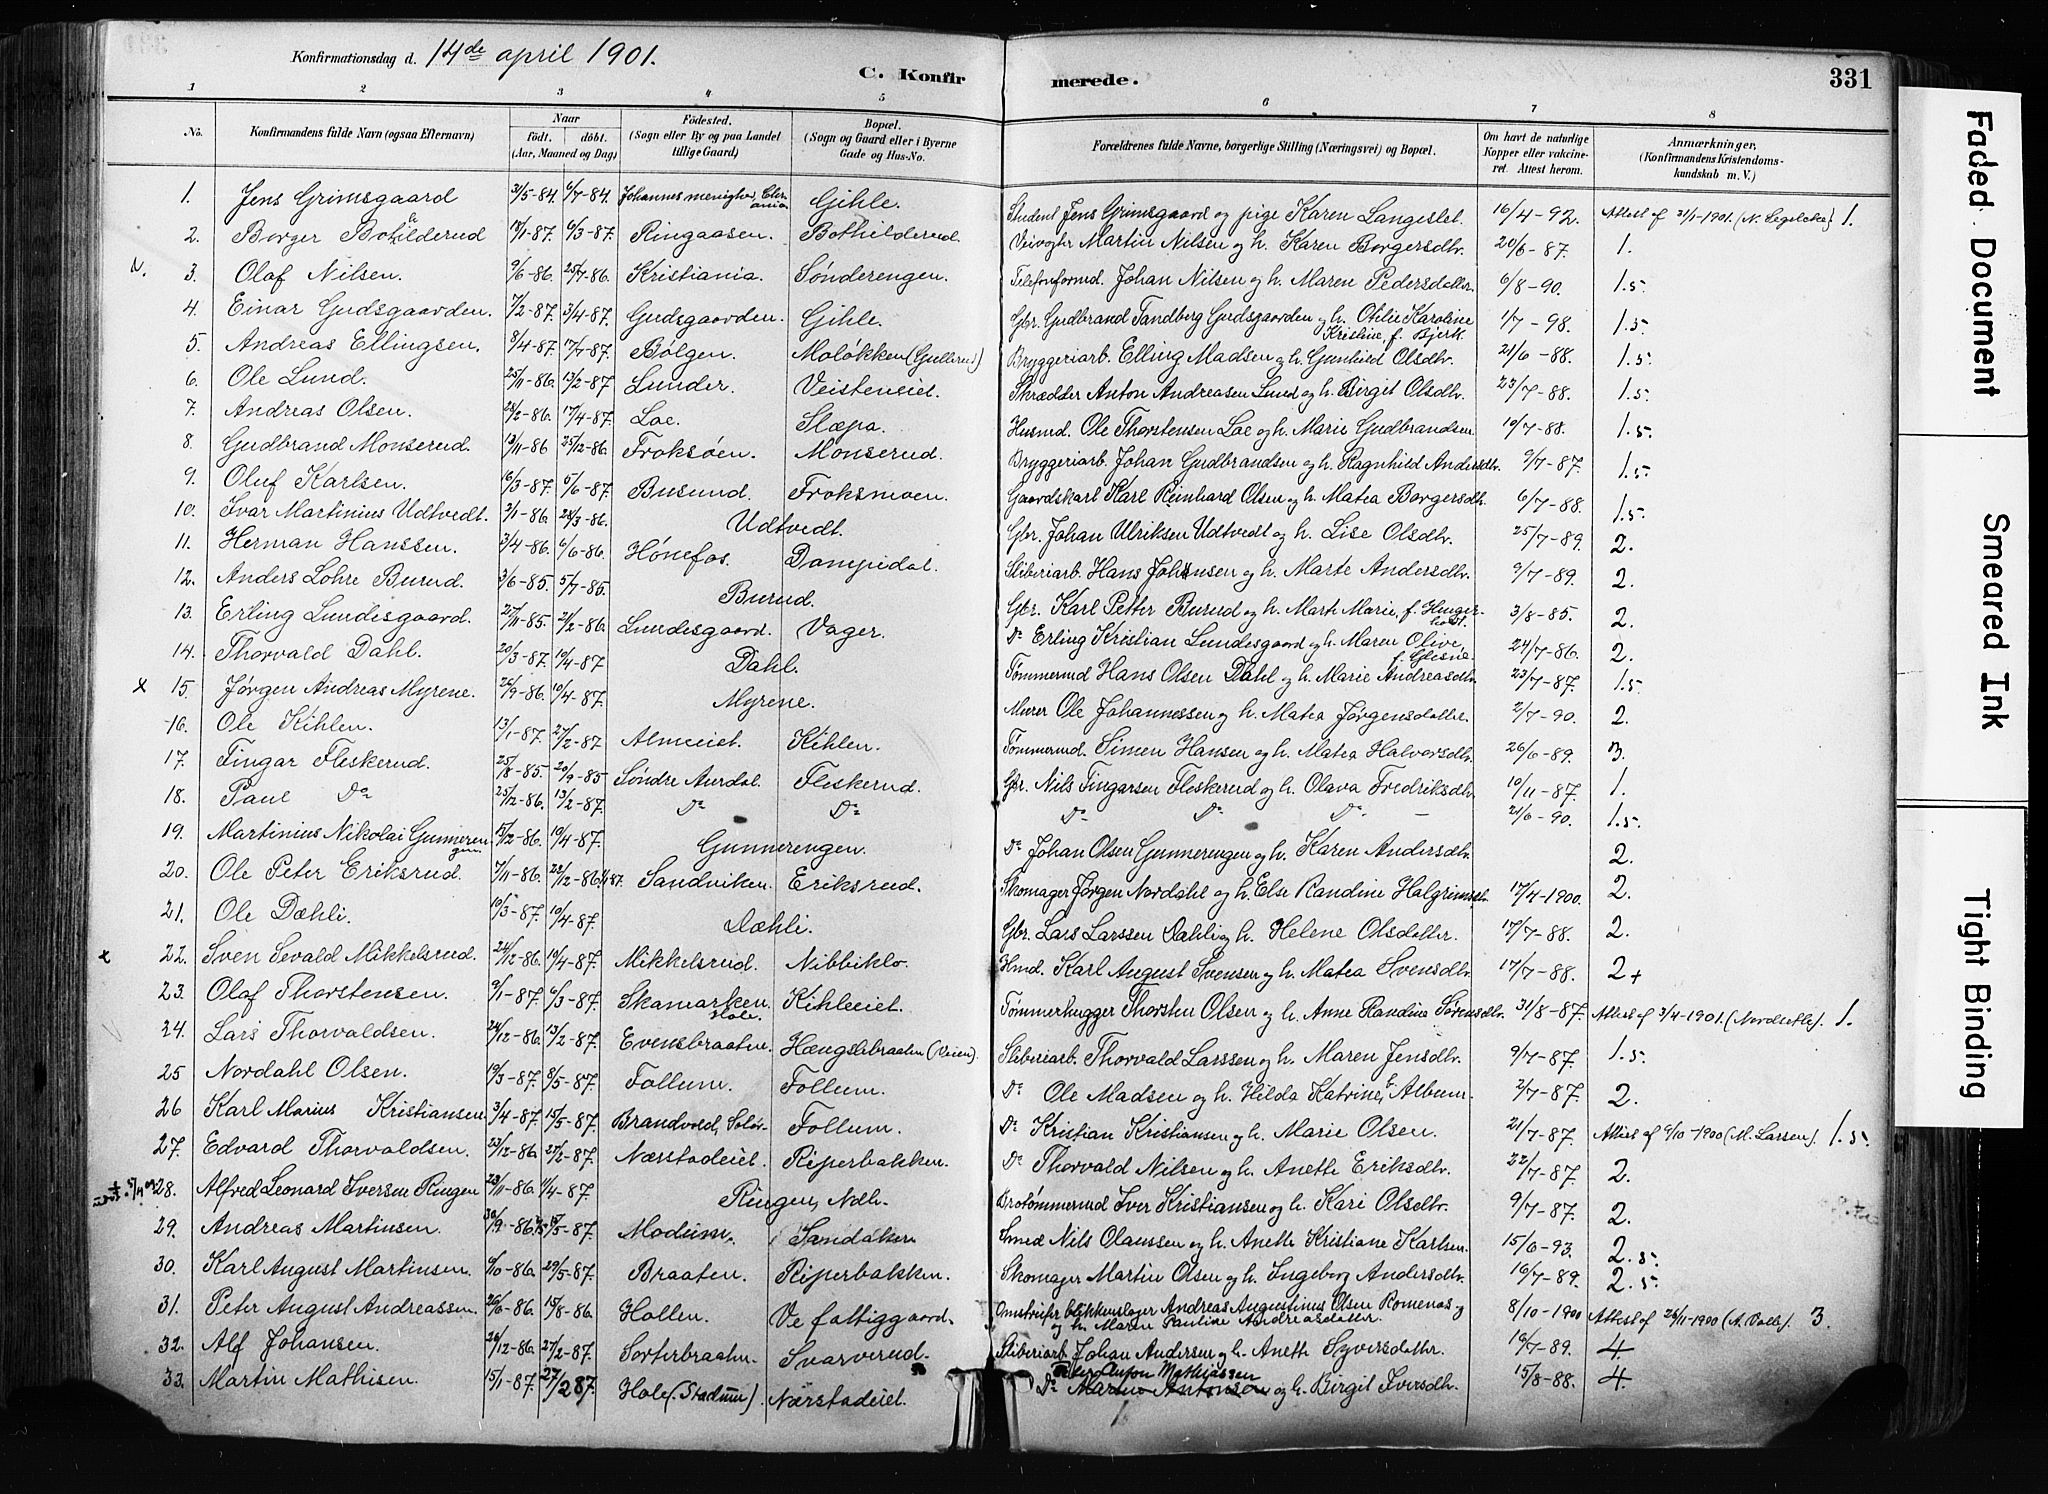 Konfirmationsdag d. 14de april 1901.
C. Konfirmerede.
331
1 2 3 4 5 6 7 8
No. Konfirmandens fulde Navn (ogsaa Efternavn) Naar født. døbt. (Aar, Maaned og Dag) Fødested. (Sogn eller By og paa Landet tillige Gaard) Bopæl. (Sogn og Gaard eller i Byerne Gade og Hus-No. Forældrenes fulde Navne, borgerlige Stilling (Næringsvei) og Bopæl. Om havt de naturlige Kopper eller vakcineret. Attest herom. Anmærkninger. (Konfirmandens Kristendomskundskab m. V.)
1. Jens Grimsgaard 31/5-84. 6/7-84. Johannes menighed, Gihle. Student Jens Grimsgaard og pige Karen Langeslet. 16/4-92. Attest af 31/1-1901. 1.
2. Borger Bothilderud 6/3-87. Ringaasen. Bothilderud. Veivogter Martin Nilsen og h. Karen Borgersdtr. 20/6-87. 1.
3. Olaf Nilsen. 9/6-86. 25/7-86. Kristiania. Sønderengen. Telefonformd. Johan Nilsen og h. Maren Pedersdatter. 6/8-90. 1.5.
4. Einar Gudsgaarden. 7/2-87. 3/4-87. Gudsgaarden. Gihle. Gbr. Gudbrand Tandberg Gudsgaarden og h. Otilie Karoline Kristine f. Bjerk. 1/7-98. 1.5
5. Andreas Ellingsen. 8/4-87. 17/7-87. Bølgen. Moløkken (Gullerud) Bryggeriarb. Elling Madsen og h. Gunhild Olsdtr. 21/6-88. 1.5
6. Ole Lund. 25/11-86. 13/2-87 Lunder. Veisteneiet. Skrædder Anton Andreasen Lund og h. Birgit Olsdtr. 23/7-88. 1.5.
7. Andreas Olsen. 17/4-87. Loe. Slæpa. Husmd. Ole Thorstensen Loe og h. Marie Gudbrandsen 10/7-88. 1.5.
8. Gudbrand Monserud. 13/11-86 25/12-86. Froksøen. Monserud. Bryggeriarb. Johan Gudbrandsen og h. Ragnhild Andersdtr. 9/7-87. 1.5
9. Oluf Karlsen. 16/3-87. 5/6-87. Busund. Froksmoen. Gaardskarl Karl Reinhard Olsen og h. Matea Borgersdtr. 6/7-88. 1.5.
10. Ivar Martinius Udtvedt. 2/1-86. 28/3-86. Udtvedt. Gbr. Johan Ulriksen Udtvedt og h. Lise Olsdtr. 25/7-89. 2.
11. Herman Hanssen. 3/4-86. 6/6-86. Hønefos. Dampidal. Sliberiarb. Hans Johansen og h. Marte Andersdtr. 9/7-89. 2.
12. Anders Lohre Burud. 3/6-85. 5/7-85. Burud. Gbr. Karl Petter Burud og h. Mart. Marie, f. 3/8-85. 2.
13. Erling Lundesgaard. 27/11-85. 2/2-86. Lundesgaard. Vager. Do Erling Kristian Lundesgaard og h. Maren Olive, f. Glesne 24/7-86. 2.
14. Thorvald Dahl. 20/3-87. 10/4-87 Dahl. Tømmermd Hans Olsen Dahl og h. Marie Andreasdtr. 23/7-87. 1.5
x 15. Jørgen Andreas Myrene. 26/9-86. 10/4-87. Myrene. Murer Ole Johannessen og h. Matea Jørgensdatter. 2/7-90. 2.
16. Ole Kihlen. 13/1-87. 27/2-87 Almeiet. Kihlen. Tømmermd. Simen Hansen og h. Matea Halvorsdtr. 26/6-89. 3.
17. Tingar Fleskerud. 25/8-85. 20/9-85 Søndre Aurdal. Fleskerud. Gbr. Nils Tingarsen Fleskerud og h. Olava Fredriksdtr. 10/11-87. 1.
18. Paul Do 25/12-86. 13/2-87. Do Do Do Do Do 21/6-90. 1.5.
19. Martinius Nikolai Gunnerengen 15/12-86. 10/4-87. Gunnerengen. Do Johan Olsen Gunnerengen og h. Karen Andersdtr. 2.
20. Ole Peter Eriksrud. 7/11-86. Sandviken. Eriksrud. Skomager Jørgen Nordahl og h. Else Randine Halgrimsdtr. 17/4-1900. 2.
21. Ole Dæhli. 10/3-87. 10/4-87. Dæhli. Gbr. Lars Larssen Dahli og h. Helene Olsdatter. 17/7-88. 2.
x 22. Sven Sevald Mikkelsrud. 24/12-86. 10/4-87. Mikkelsrud. Nibbiklo. Hmd. Karl August Svensen og h. Matea Svensdtr. 17/7-88. 2+
23. Olaf Thorstensen. 9/1-87. 6/3-87. Skamarken Hole. Kihleeiet. Tømmerhugger Thorsten Olsen og h. Anne Randine Sørensdtr. 31/8-87. Attest af 3/4-1901. (Nordsetle). 1.
24. Lars Thorvaldsen. 24/12-86. 13/2-87. Evensbraaten. Hængslebraaten (Veien). Sliberiarb. Thorvald Larssen og h. Maren Jensdtr. 9/7-87. 1.5
25 Nordahl Olsen. 19/3-87. 8/5-87. Follum. Follum. Do Ole Madsen og h. Hilda Katrine E. Album. 2/7-87. 2.
26 Karl Marius Kristiansen 3/4-87. 15/5-87. Brandvold, Solør. Follum. Do Kristian Kristiansen og h. Marie Olsen. 21/7-87. Attest af 9/10-1900 (M. Larsen). 1.5.
27. Edvard Thorvaldsen. 23/12-86. 27/2-87. Nærstadeiet. Riperbakken. Do Thorvald Nilsen og h. Anette Eriksdtr. 22/7-87. 2.
28. Alfred Leonard Iversen Ringen 23/11-86. 11/4-87. Ringen, Ndh. Brotømmermd Iver Kristiansen og h. Kari Olsdtr. 9/7-87. 2.
29. Andreas Martinsen. 30/9-86. Modum. Sandaker Smed Nils Olaussen og h. Anette Kristiane Karlsen. 15/6-93. 2.5.
30. Karl August Martinsen. 29/5-87. Braaten. Riperbakken. Skomager Martin Olsen og h. Ingeborg Andersdtr. 16/7-89. 2.5.
31. Peter August Andreassen 26/6-86. 15/8-86. Hollen. Ve fattiggaard. Omstreifer blikkenslager Andreas Augustinus Olsen Romenas og h. Maren Pauline Andreasdatter. 8/10-1900 Attest af 26/11-1900 3.
32. Alf Johansen. 26/12-86. 27/2-87. Sorterbraaten. Svarverud. Sliberiarb. Johan Andersen og h. Anette Syversdatter. 16/7-89. 4.
33. Martin Mathisen. 15/1-87. 27/2 87. Hole (Stadum). Nærstadeiet. Do Anton Mathiassen Martin Antonsen og h. Birgit Iversdtr. 15/8-88. 4.
Faded Document
Smeared Ink
Tight Binding